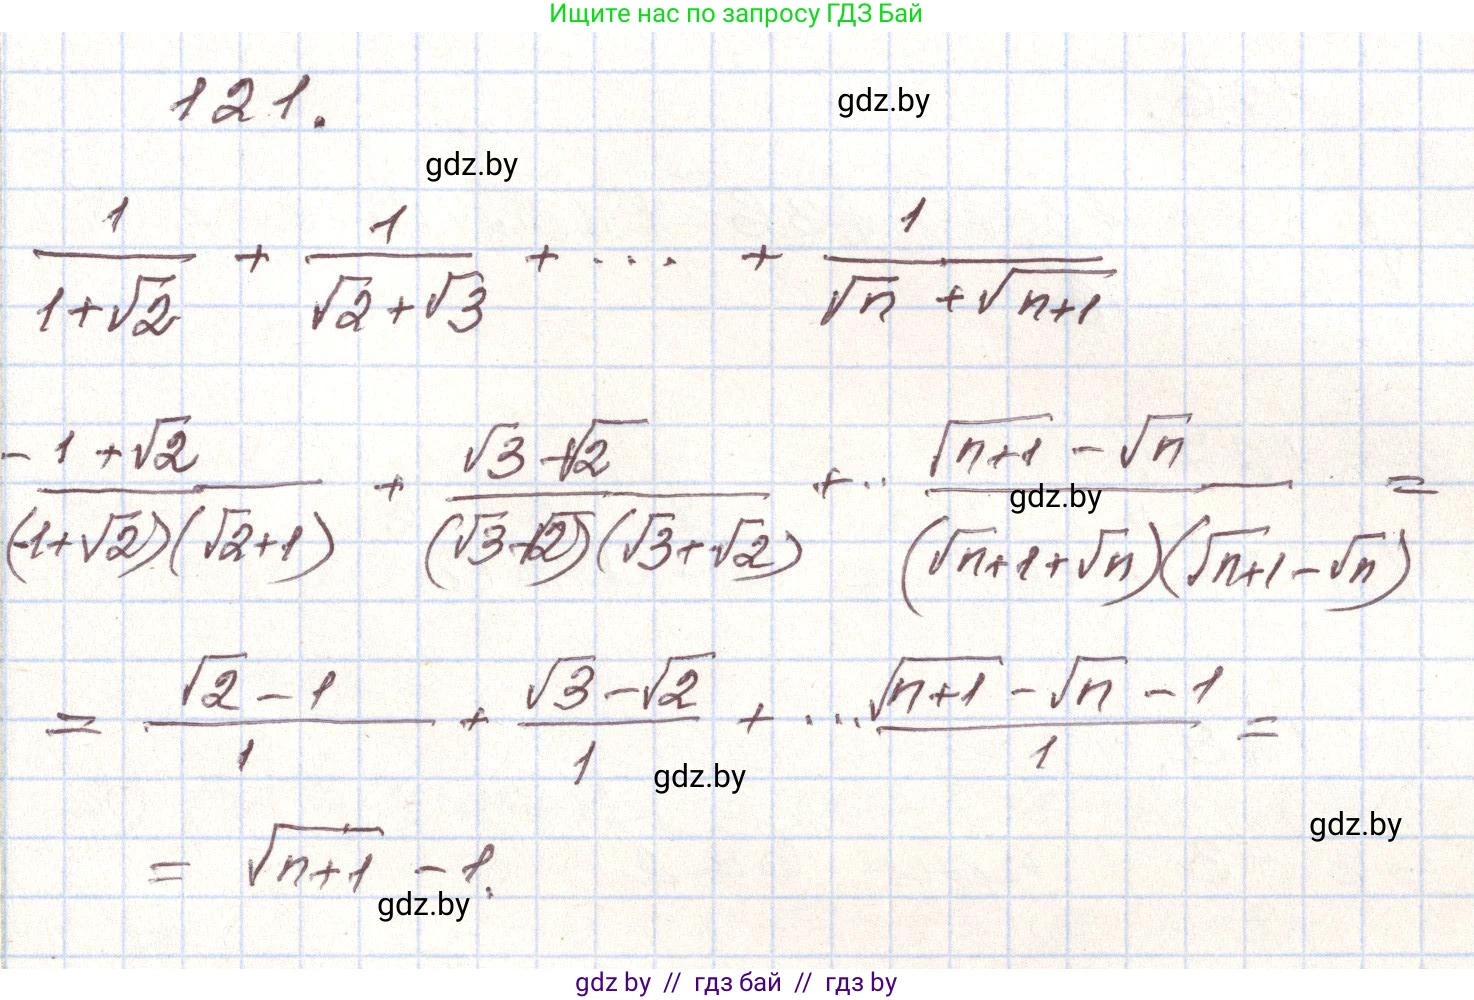 Ищите нас по запросу ГДЗ Бай
121.
gdz.by
gdz.by
1/(1+√2) + 1/(√2+√3) + ... + 1/(√n + √(n+1))
(-1+√2)/((-1+√2)(√2+1)) + (√3-√2)/((√3-√2)(√3+√2)) + .. (√(n+1) - √n)/((√n+1+√n)(√n+1-√n)) =
gdz.by
= (√2 - 1)/1 + (√3-√2)/1 + ... (√(n+1) - √n - 1)/1 =
gdz.by
gdz.by
= √(n+1) - 1.
gdz.by
gdz by // гдз бай // гдз by